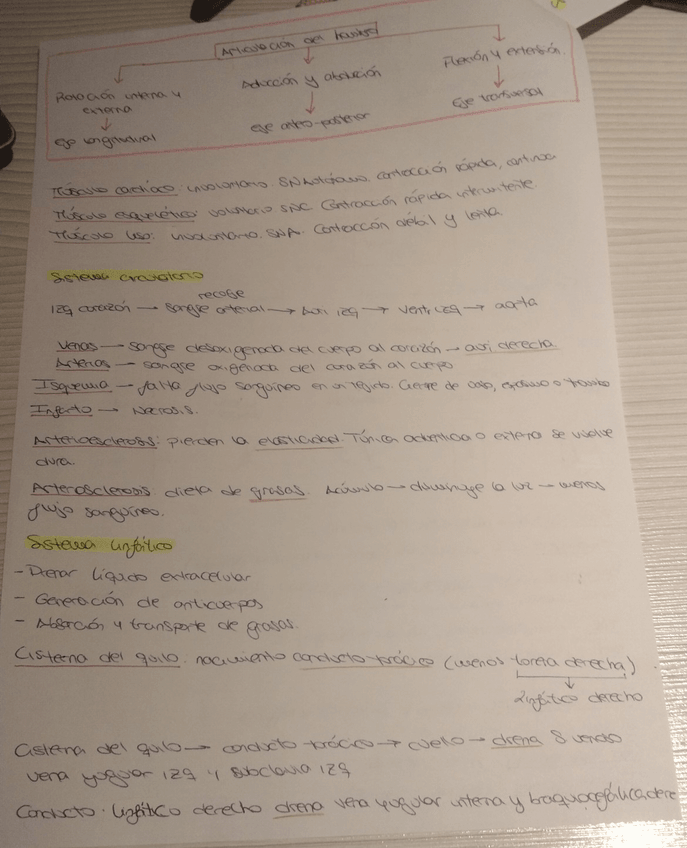 Articulación del hombro
Rotación interna y
externa
Eje longitudinal
Aducción y abducción
Eje antero-posterior
Flexión y extensión.
Eje transversal
Músculo cardíaco: involuntario. SN Autónomo. contracción rápida, continua
Músculo esquelético: voluntario SNC. Contracción rápida intermitente
Músculo liso: involuntario. SNA. Contracción débil y lenta.
Sistema circulatorio
recoge
izq corazón → sangre arterial → Auri izq → ventr izq → aorta
Venas → sangre desoxigenada del cuerpo al corazón → auri derecha
Arterias → sangre oxigenada del corazón al cuerpo
Isquemia → falta flujo sanguíneo en un tejido. Cierre de vaso, espasmo o trombo
Infarto → Necrosis.
Arterioesclerosis: pierden la elasticidad. Túnica adventicia o externa se vuelve
dura.
Arterosclerosis dieta de grasas. Acúmulo → disminuye la luz → menos
flujo sanguíneo.
Sistema linfático
- Drenar líquido extracelular
- Generación de anticuerpos
- Absorción y transporte de grasas.
Cisterna del quilo. nacimiento conducto torácico (menos torax derecha)
Linfático derecho
Cisterna del quilo → conducto torácico → cuello → drena S venoso
vena yugular izq y subclavia izq
Conducto linfático derecho drena vena yugular interna y braquiocefálica dere